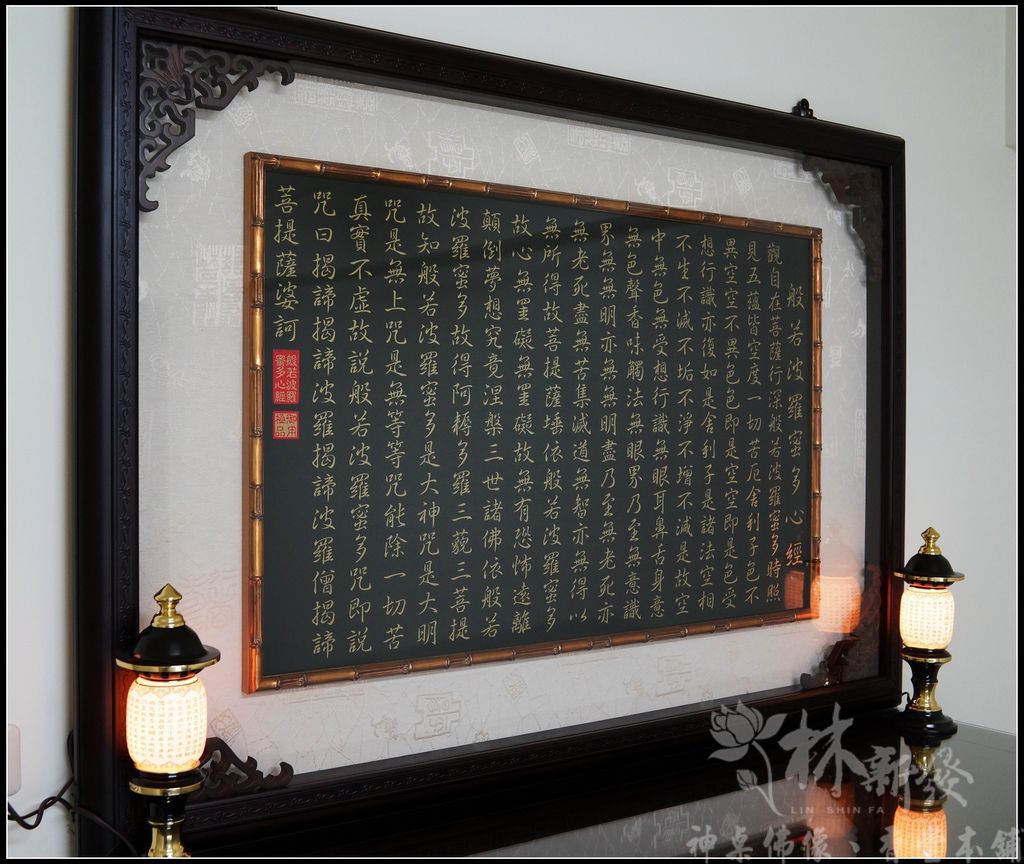 般若波羅蜜多心經
觀自在菩薩行深般若波羅蜜多時照
見五蘊皆空度一切苦厄舍利子色不
異空空不異色色即是空空即是色受
想行識亦復如是舍利子是諸法空相
不生不滅不垢不淨不增不減是故空
中無色無受想行識無眼耳鼻舌身意
無色聲香味觸法無眼界乃至無意識
界無無明亦無無明盡乃至無老死亦
無老死盡無苦集滅道無智亦無得以
無所得故菩提薩埵依般若波羅蜜多
故心無罣礙無罣礙故無有恐怖遠離
顛倒夢想究竟涅槃三世諸佛依般若
波羅蜜多故得阿耨多羅三藐三菩提
故知般若波羅蜜多是大神咒是大明
咒是無上咒是無等等咒能除一切苦
真實不虛故說般若波羅蜜多咒即說
咒曰揭諦揭諦波羅揭諦波羅僧揭諦
菩提薩婆訶
般若波羅
蜜多心經
林新發
LIN SHIN FA
神桌佛像、本舖